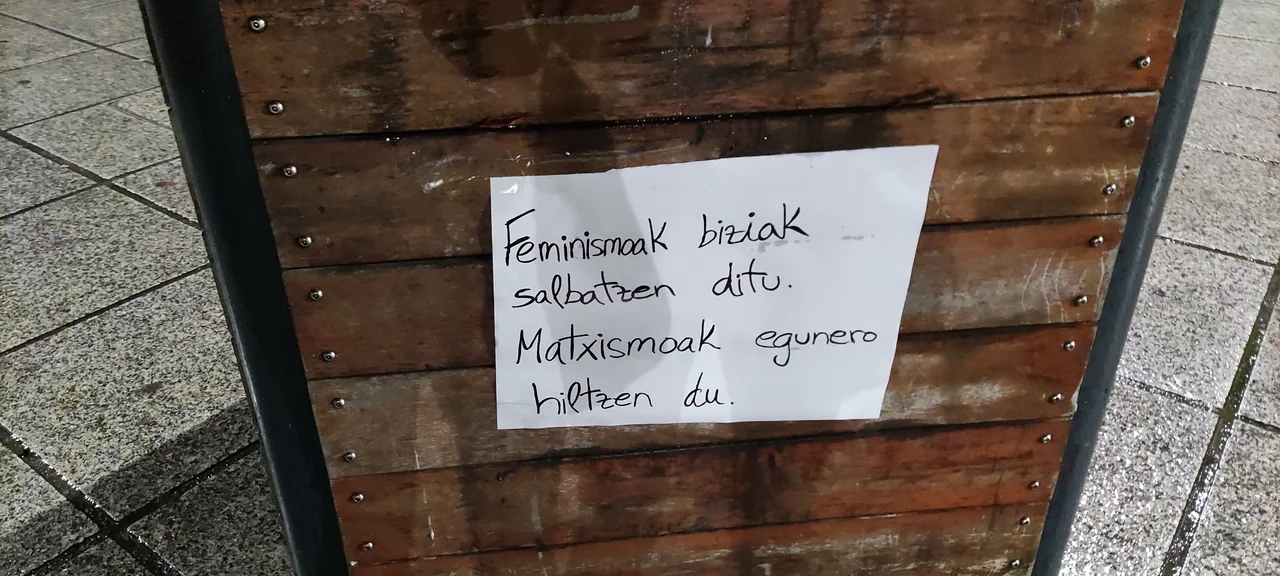 Feminismoak biziak
salbatzen ditu.
Matxismoak egunero
hiltzen du.